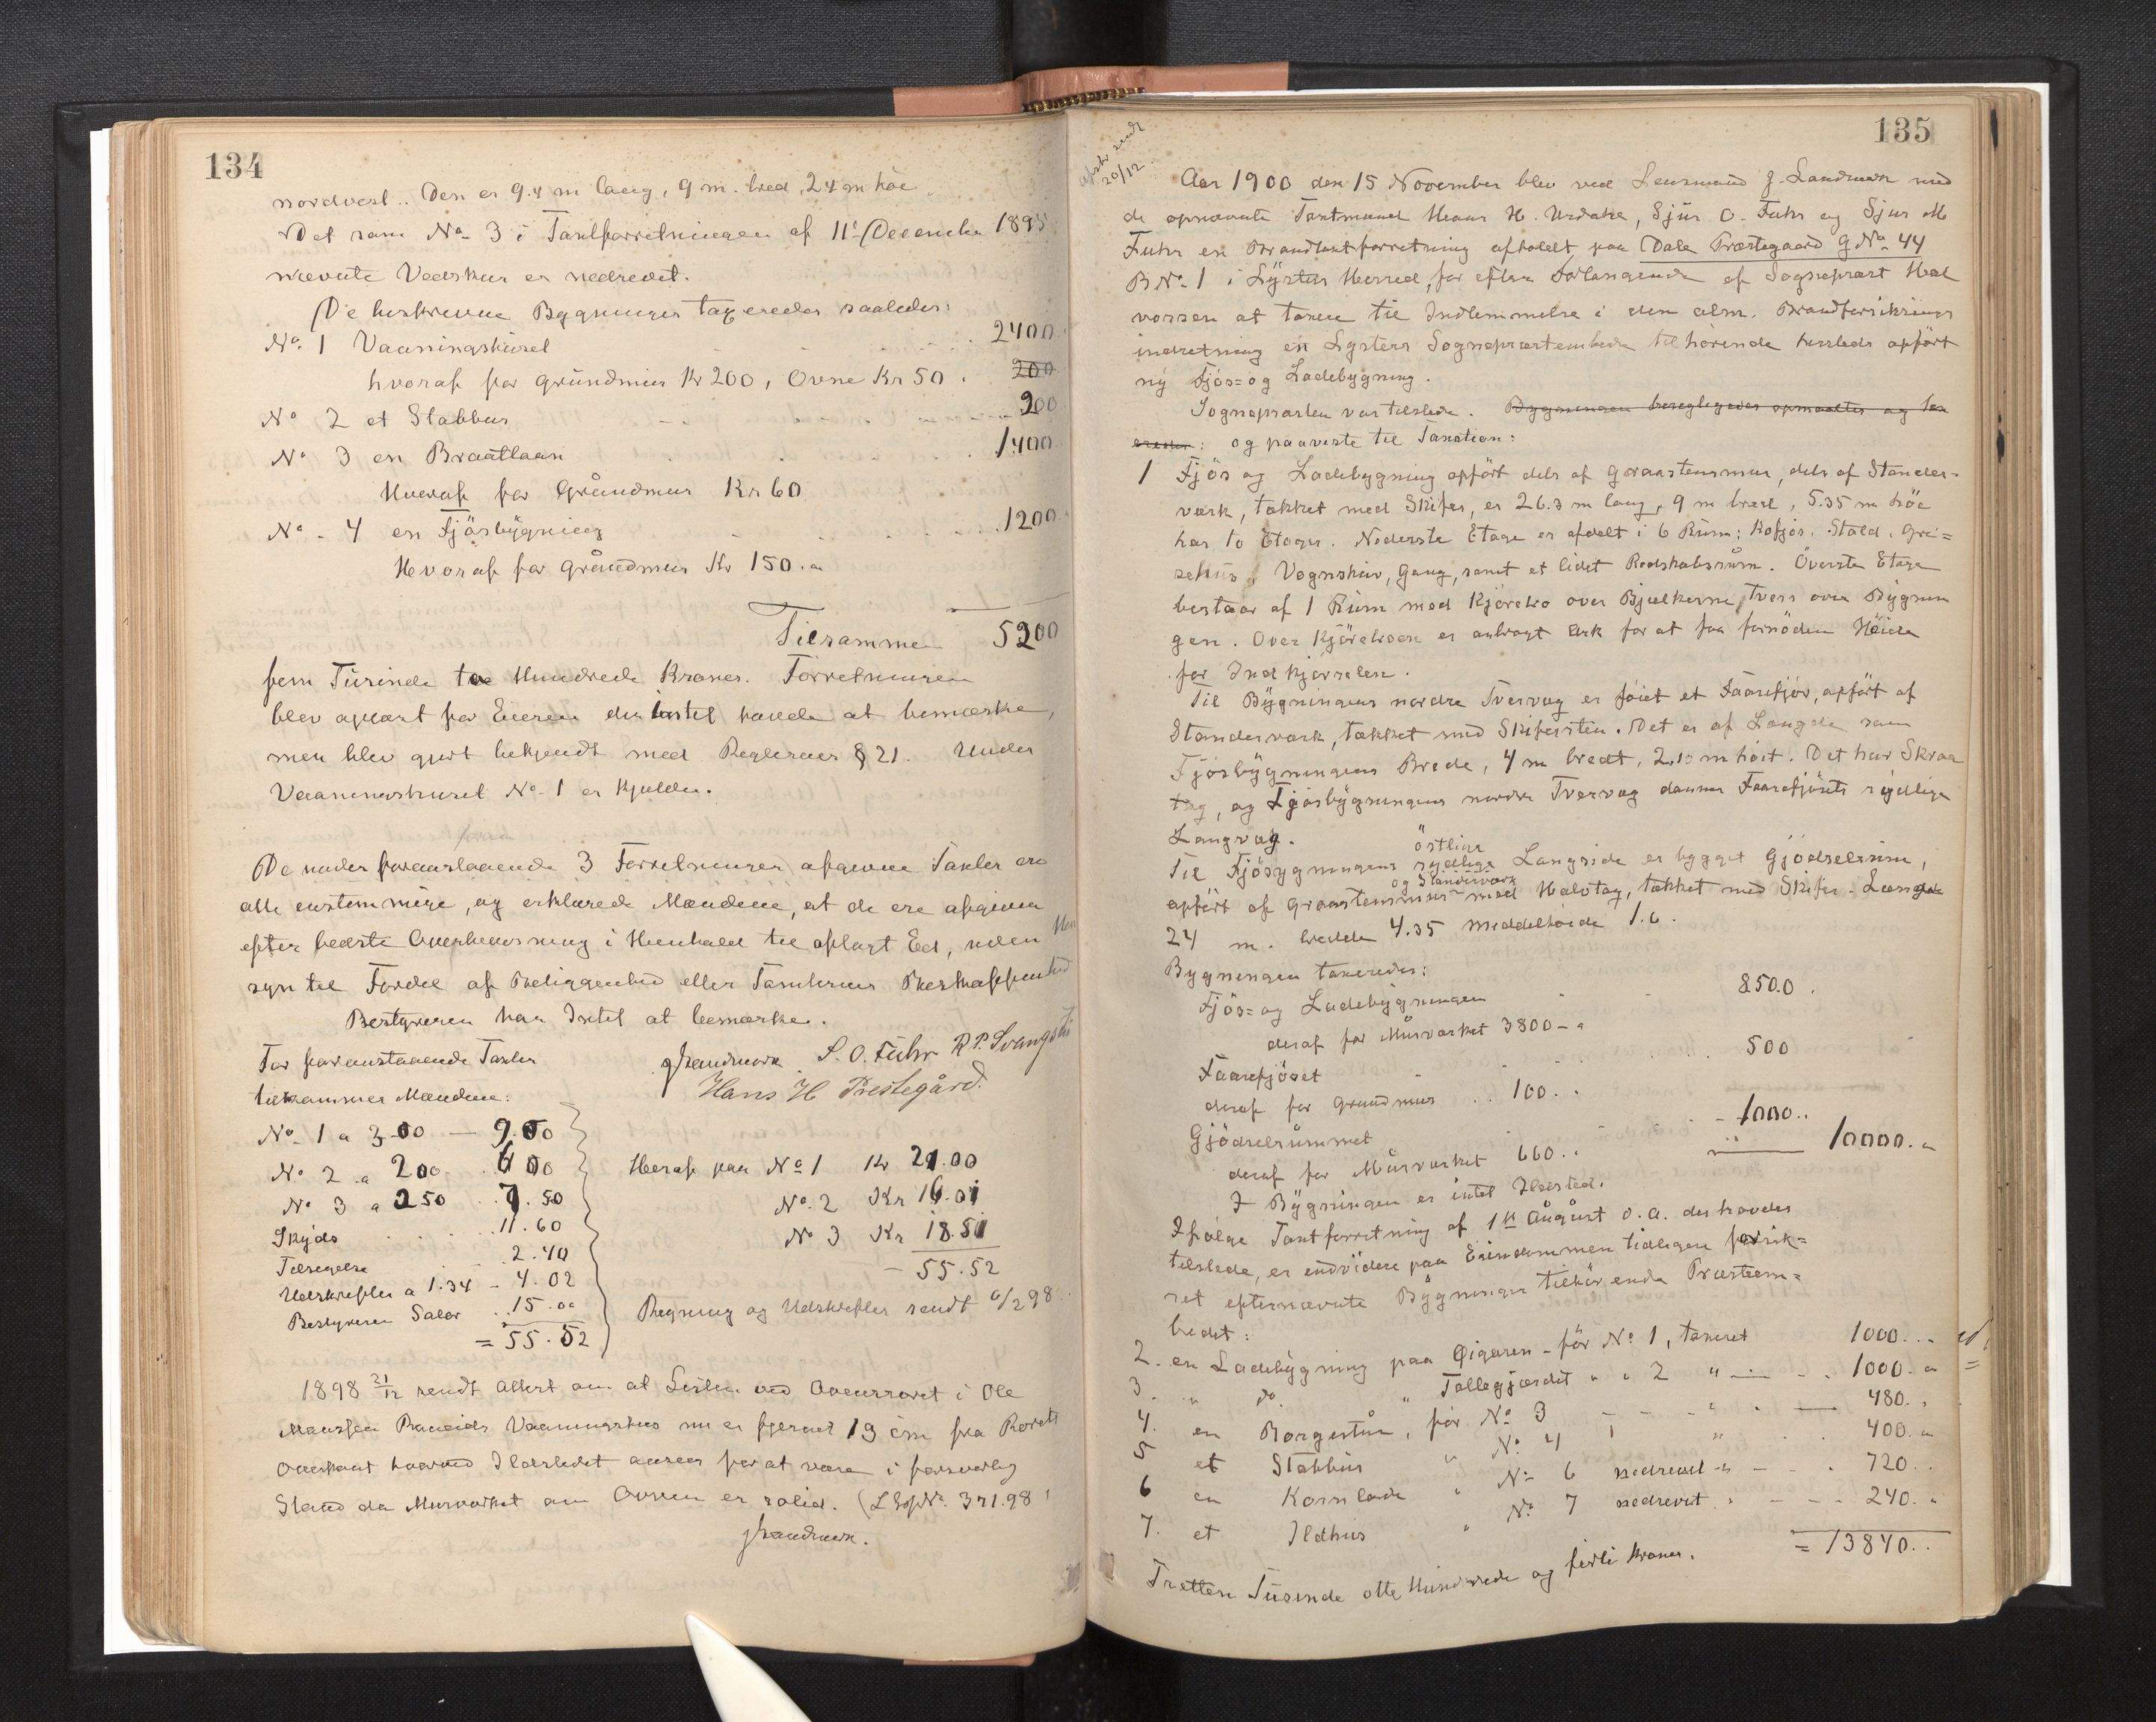 134
nordvest.. Den er 9.4 m lang, 9 m. bred, 2.4 m høi
Det som No. 3 i Taxtforretningen af 11te December 1895
nævnte Vedskur er nedrevet.
De beskrevne Bygninger taxeredes saaledes:
No. 1 Vaaningshuset 2400
hvoraf for Grundmur Kr 200, Ovne Kr 50. 200
No 2 et Stabbur 200
No 3 en Braatlaan 1400
Hvoraf for Grundmur Kr 60
No - 4 en Fjösbygning 1200
Hvoraf for Grundmur Kr 150.
Tilsammen 5200
fem Tusinde to Hundrede Kroner. Forretningen
blev oplæst for Eieren der intet havde at bemærke,
men blev gjort bekjendt med Reglernes § 21. Under
Vaaningshuset No. 1 er Kjelder.
De under foranstaaende 3 Forretninger afgivne Taxter ere
alle enstemmige, og erklærede Mændene, at de ere afgivne
efter bedste Overbevisning i Henhold til aflagt Ed, uden Hen
syn til Fordel af Beliggenhed eller Tomternes Beskaffenhed
Bestyreren har Intet at bemærke.
For foranstaaende Taxter
tilkommer Mændene:
JLandmark. S. O. Fuhr R. P.
Hans H Prestegård.
No. 1 a 3.00 — 9.00
No. 2 a 2.00 6.00
No. 3 a 2.50 7.50
Skyds 11.60
Tilsigelse 2.40
Udskrifter a 1.34 - 4.02
Bestyreren Salær 15.00
= 55.52
Heraf paa No 1 Kr 21.00
No. 2 Kr 16.01
No 3 Kr 18.51
55.52
Regning og Udskrifter sendt 98
1898 21/12 sendt Attest om at Listen ved Ovnsrøret i Ole
Vaaningshus nu er fjernet 19 cm fra Rørets
hvorved Ildstedet ansees for at være i forsvarlig
Stand da Murværket om Ovnen er solid. 371.98
JLandmark.
135
20/12
Aar 1900 den 15 November blev ved Lensmand J. Landmark med
de opnævnte Taxtmænd Hans H. Urdahe, Sjur O. Fuhr og Sjur M
Fuhr en Brandtaxtforretning afholdt paa Dale Præstegaard GNo. 44
BNo. 1 i Lyster Herred, for efter Forlangende af Sogneprest Hal
vorsen at taxere til Indlemmelse i den alm. Brandforsikrings
indretning en Lysters Sogneprestembede tilhørende herstedes opført
ny Fjös- og Ladebygning.
Sognepresten var tilstede. Bygningen besigtigedes opmaaltes og tax
eredes: og paaviste til Taxation:
1 Fjös og Ladebygning opført dels af Graastensmur, dels af Stander-
værk, tækket med Skifer, er 26.3 m lang, 9 m bred, 5.35 m høi
har to Etager. Nederste Etage er afdelt i 6 Rum: Kofjös, Stald, Gri=
sehus, Vognskur, Gang, samt et lidet Redskabsrum. Överste Etage
bestaar af 1 Rum med Kjørebro over Bjælkerne tvers over Bygnin
gen. Over Kjørebroen er anbragt Ark for at faa fornøden Høide
for Indkjørselen.
Til Bygningens nordre Tvervæg er føiet et Faarefjös, opført af
Standerværk, tækket med Skifersten. Det er af Længde som
Fjösbygningens Brede, 4 m bredt, 2.10 m høit. Det har Skraa
tag, og Fjösbygningens nordre Tvervæg danner Faarefjösets sydlige
Langvæg. östlige
Til Fjösbygningens sydlige Langside er bygget Gjödselrum,
og Standerværk
opført af Graastensmur med Halvtag, tækket med Skifer. Længde
24 m. bredde 4.35 middelhøide 1.6.
Bygningen taxeredes:
Fjös- og Ladebygningen 8500.
deraf for Murværket 3800 -
Faarefjöset 500
deraf for Grundmur .. 100..
Gjödselrummet 1000..
deraf for Murværket 660.. 10000.
I Bygningen er intet Ildsted.
Ifølge Taxtforretning af 1ste August d. A. der havdes
tilstede, er endvidere paa Eiendommen tidligere forsik=
ret efternævnte Bygninger tilhørende Præsteem=
bedet:
2. en Ladebygning paa Øigaren - før No. 1, taxeret 1000..
3. " do " Tollegjerdet " " 2 " 1000.
4. en Borgestue, før No. 3 480.
5 et Stabbur " No. 4 " 400.
6 en Kornlade " No 6 nedrevet 720..
7. et Ildhus " No. 7 nedrevet 240.
= 13840..
Tretten Tusinde otte Hundrede og firti Kroner.